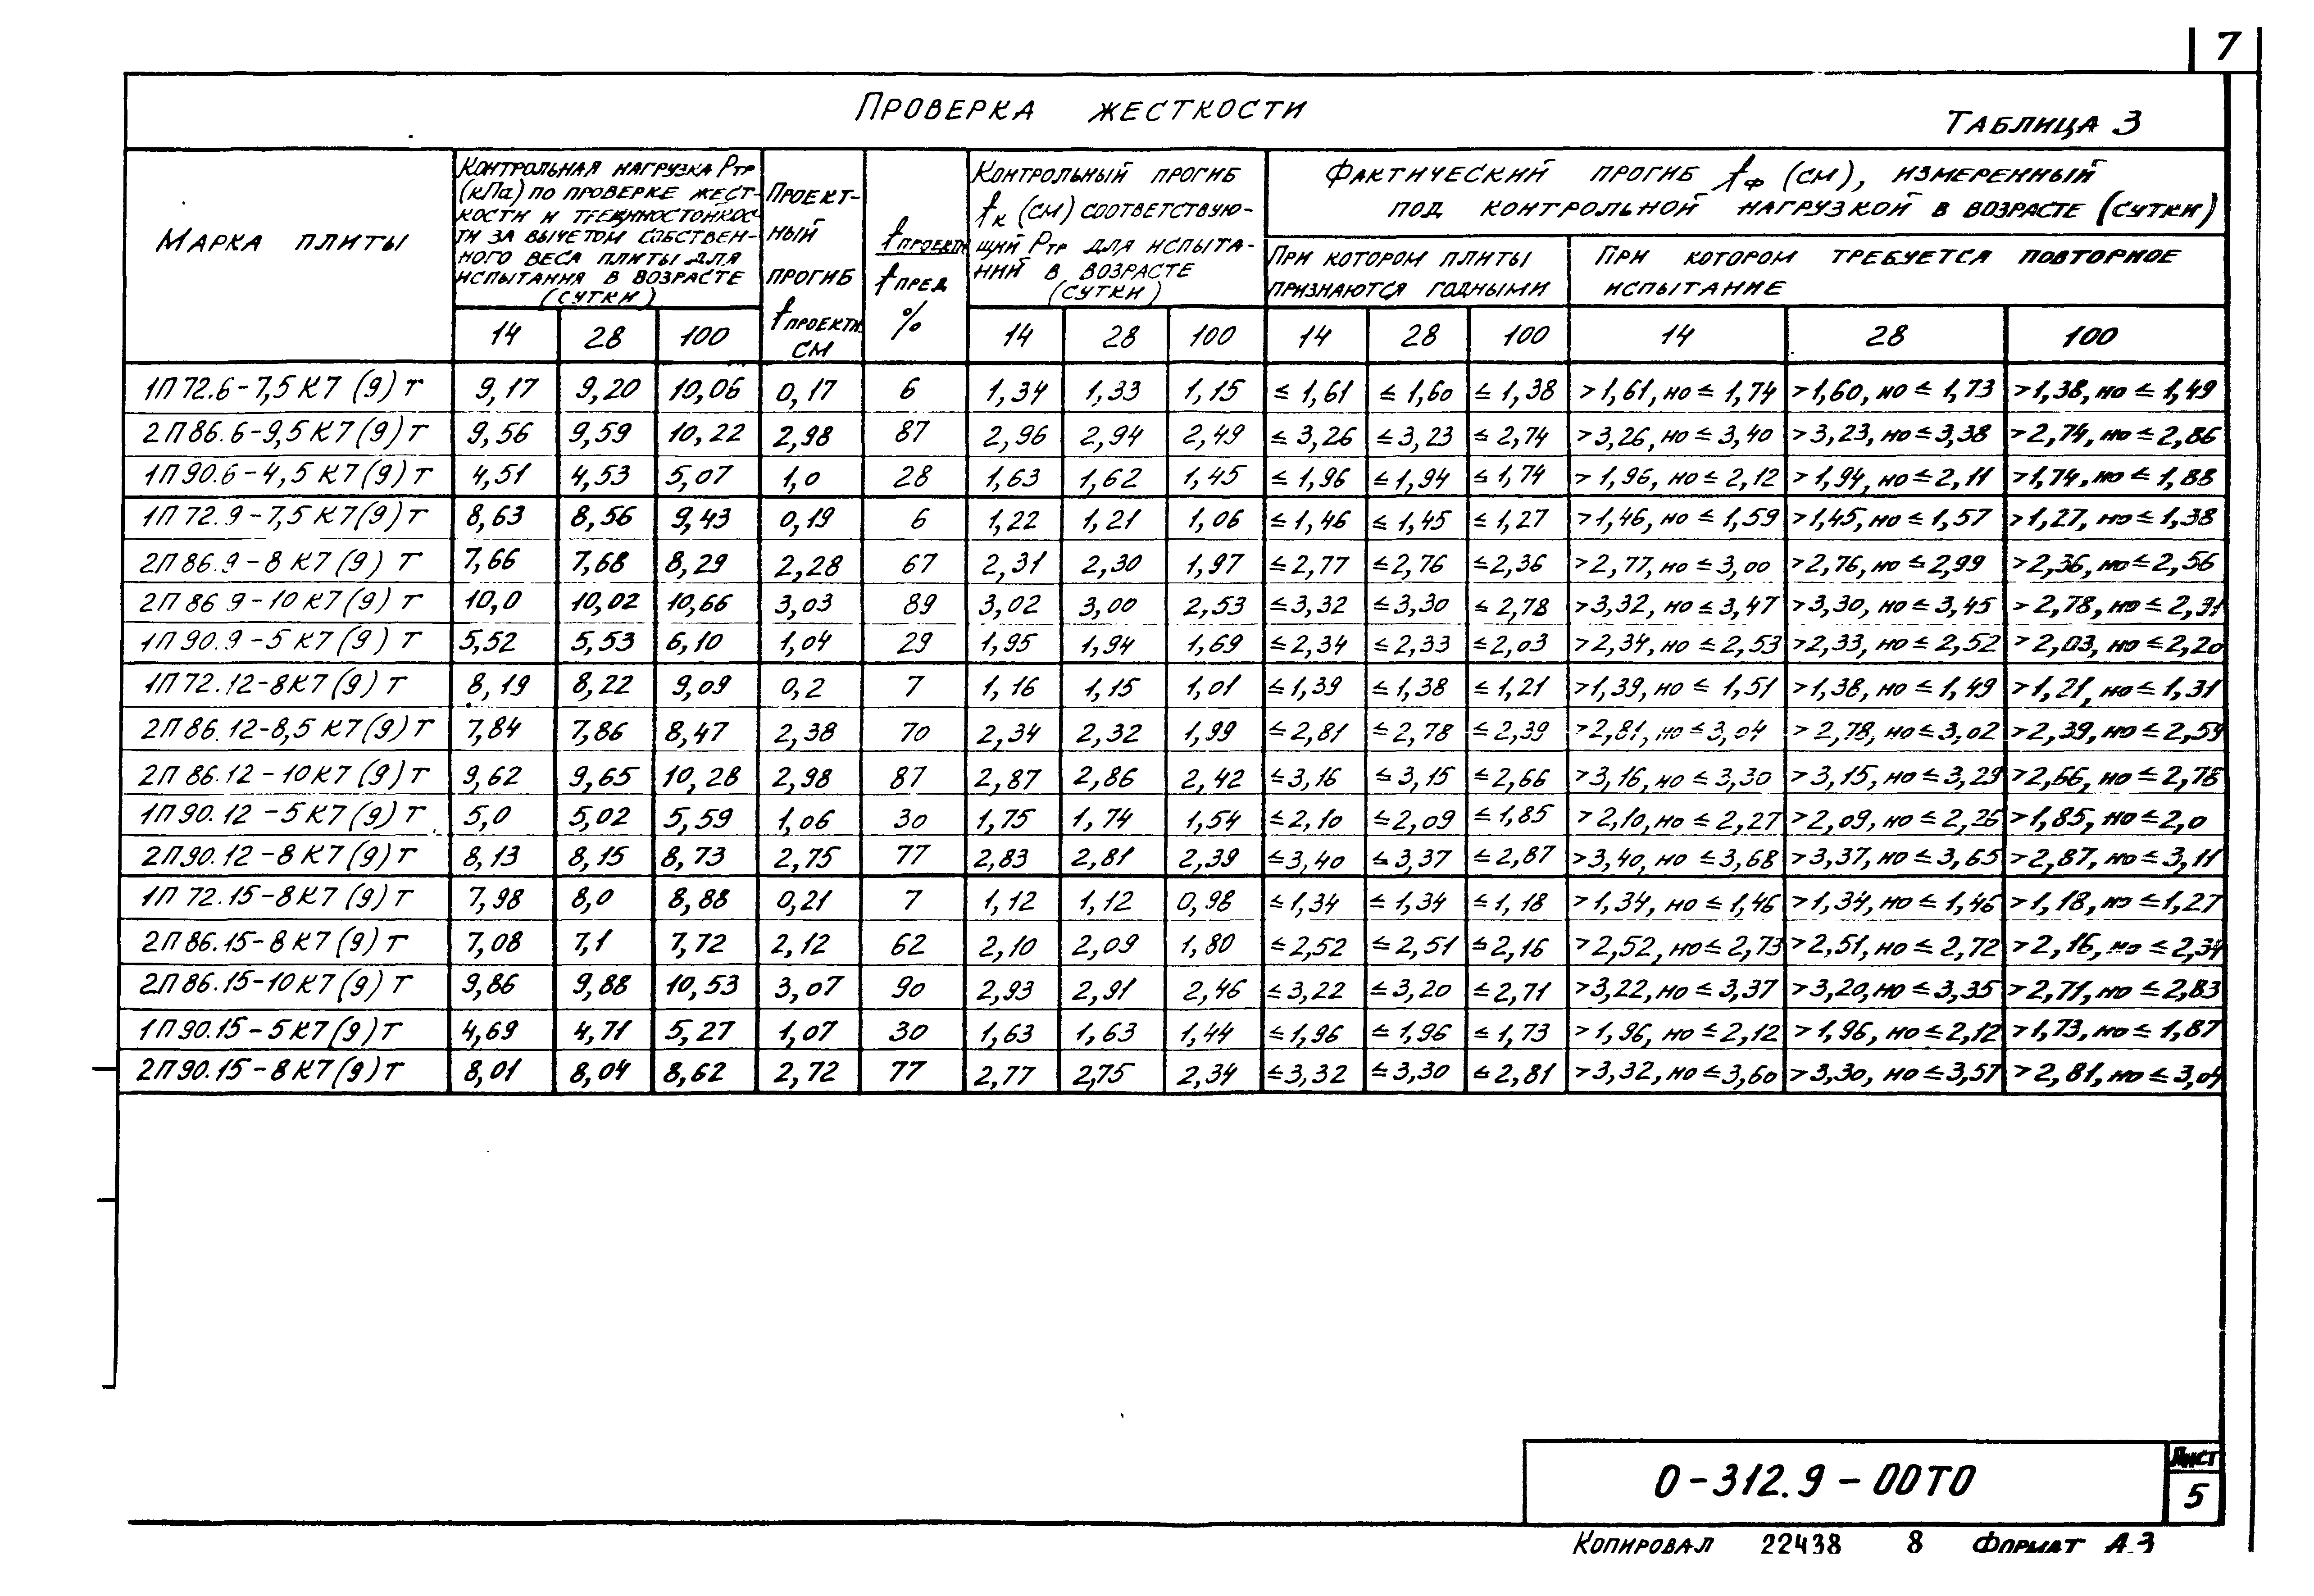 7
Проверка жесткости
Таблица 3
Марка плиты
Контрольная нагрузка Pтр
(кПа) по проверке жест-
кости и трещиностойкос-
ти за вычетом собствен-
ного веса плиты для
испытания в возрасте
(сутки)
14 28 100
Проект-
ный
прогиб
fпроектн.
см
fпроектн
fпред
%
Контрольный прогиб
fк (см) соответствую-
щий Pтр для испыта-
ний в возрасте
(сутки)
14 28 100
Фактический прогиб fф (см), измеренный
под контрольной нагрузкой в возрасте (сутки)
При котором плиты
признаются годными
14 28 100
При котором требуется повторное
испытание
14 28 100
1П72.6-7,5К7(9)т 9,17 9,20 10,06 0,17 6 1,34 1,33 1,15 ≤1,61 ≤1,60 ≤1,38 >1,61, но ≤1,74 >1,60, но ≤1,73 >1,38, но ≤1,49
2П86.6-9,5К7(9)т 9,56 9,59 10,22 2,98 87 2,96 2,94 2,49 ≤3,26 ≤3,23 ≤2,74 >3,26, но ≤3,40 >3,23, но ≤3,38 >2,74, но ≤2,86
1П90.6-4,5К7(9)т 4,51 4,53 5,07 1,0 28 1,63 1,62 1,45 ≤1,96 ≤1,94 ≤1,74 >1,96, но ≤2,12 >1,94, но ≤2,11 >1,74, но ≤1,88
1П72.9-7,5К7(9)т 8,63 8,56 9,43 0,19 6 1,22 1,21 1,06 ≤1,46 ≤1,45 ≤1,27 >1,46, но ≤1,59 >1,45, но ≤1,57 >1,27, но ≤1,38
2П86.9-8К7(9)т 7,66 7,68 8,29 2,28 67 2,31 2,30 1,97 ≤2,77 ≤2,76 ≤2,36 >2,77, но ≤3,00 >2,76, но ≤2,99 >2,36, но ≤2,56
2П86 9-10К7(9)т 10,0 10,02 10,66 3,03 89 3,02 3,00 2,53 ≤3,32 ≤3,30 ≤2,78 >3,32, но ≤3,47 >3,30, но ≤3,45 >2,78, но ≤2,91
1П90.9-5К7(9)т 5,52 5,53 6,10 1,04 29 1,95 1,94 1,69 ≤2,34 ≤2,33 ≤2,03 >2,34, но ≤2,53 >2,33, но ≤2,52 >2,03, но ≤2,20
1П72.12-8К7(9)т 8,19 8,22 9,09 0,2 7 1,16 1,15 1,01 ≤1,39 ≤1,38 ≤1,21 >1,39, но ≤1,51 >1,38, но ≤1,49 >1,21, но ≤1,31
2П86.12-8,5К7(9)т 7,84 7,86 8,47 2,38 70 2,34 2,32 1,99 ≤2,81 ≤2,78 ≤2,39 >2,81, но ≤3,04 >2,78, но ≤3,02 >2,39, но ≤2,59
2П86.12-10К7(9)т 9,62 9,65 10,28 2,98 87 2,87 2,86 2,42 ≤3,16 ≤3,15 ≤2,66 >3,16, но ≤3,30 >3,15, но ≤3,29 >2,66, но ≤2,78
1П90.12-5К7(9)т 5,0 5,02 5,59 1,06 30 1,75 1,74 1,54 ≤2,10 ≤2,09 ≤1,85 >2,10, но ≤2,27 >2,09, но ≤2,26 >1,85, но ≤2,0
2П90.12-8К7(9)т 8,13 8,15 8,73 2,75 77 2,83 2,81 2,39 ≤3,40 ≤3,37 ≤2,87 >3,40, но ≤3,68 >3,37, но ≤3,65 >2,87, но ≤3,11
1П72.15-8К7(9)т 7,98 8,0 8,88 0,21 7 1,12 1,12 0,98 ≤1,34 ≤1,34 ≤1,18 >1,34, но ≤1,46 >1,34, но ≤1,46 >1,18, но ≤1,27
2П86.15-8К7(9)т 7,08 7,1 7,72 2,12 62 2,10 2,09 1,80 ≤2,52 ≤2,51 ≤2,16 >2,52, но ≤2,73 >2,51, но ≤2,72 >2,16, но ≤2,34
2П86.15-10К7(9)т 9,86 9,88 10,53 3,07 90 2,93 2,91 2,46 ≤3,22 ≤3,20 ≤2,71 >3,22, но ≤3,37 >3,20, но ≤3,35 >2,71, но ≤2,83
1П90.15-5К7(9)т 4,69 4,71 5,27 1,07 30 1,63 1,63 1,44 ≤1,96 ≤1,96 ≤1,73 >1,96, но ≤2,12 >1,96, но ≤2,12 >1,73, но ≤1,87
2П90.15-8К7(9)т 8,01 8,04 8,62 2,72 77 2,77 2,75 2,34 ≤3,32 ≤3,30 ≤2,81 >3,32, но ≤3,60 >3,30, но ≤3,57 >2,81, но ≤3,04
0-312.9-00Т0
Лист
5
Копировал 22438 8 Формат А3